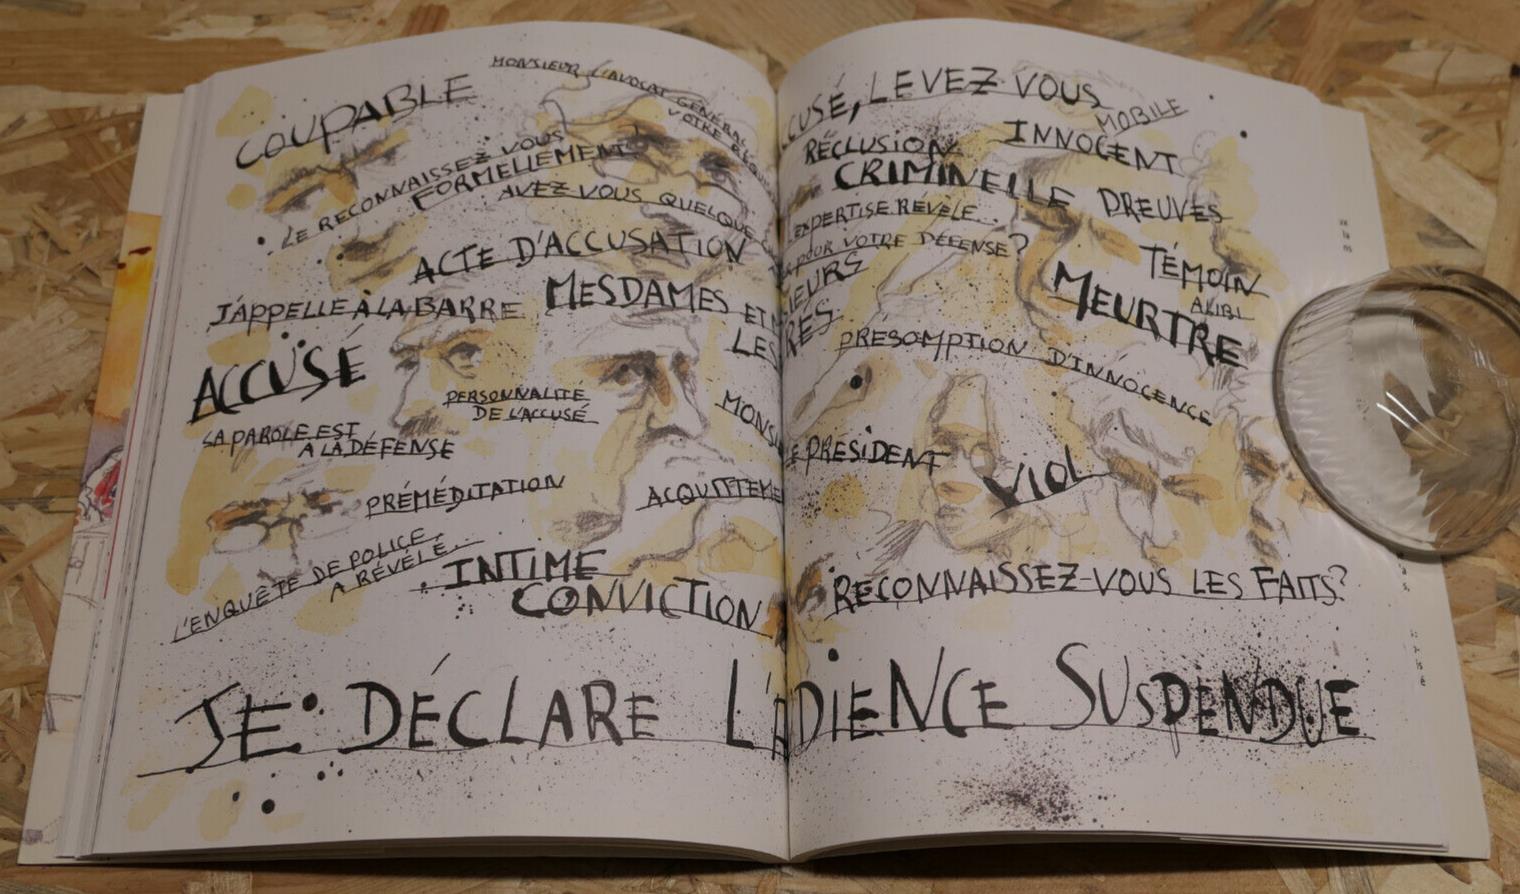 COUPABLE
MONSIEUR L'AVOCAT GÉNÉRAL
VOTRE
LE RECONNAISSEZ VOUS
FORMELLEMENT
AVEZ VOUS QUELQUE
ACTE D'ACCUSATION
J'APPELLE À LA BARRE
MESDAMES ET
LES
ACCUSÉ
PERSONNALITÉ
DE L'ACCUSÉ
LA PAROLE EST
A LA DÉFENSE
PRÉMÉDITATION
ACQUITTEME
L'ENQUÊTE DE POLICE
A RÉVÉLÉ...
INTIME
CONVICTION
CUSÉ, LEVEZ VOUS
MOBILE
RÉCLUSION
CRIMINELLE
INNOCENT
PREUVES
L'EXPERTISE RÉVÈLE...
POUR VOTRE DÉFENSE?
IEURS
RES
TÉMOIN
ALIBI
MEURTRE
PRÉSOMPTION D'INNOCENCE
LE PRESIDENT
VIOL
RECONNAISSEZ-VOUS LES FAITS?
JE DÉCLARE L'ADIENCE SUSPENDUE